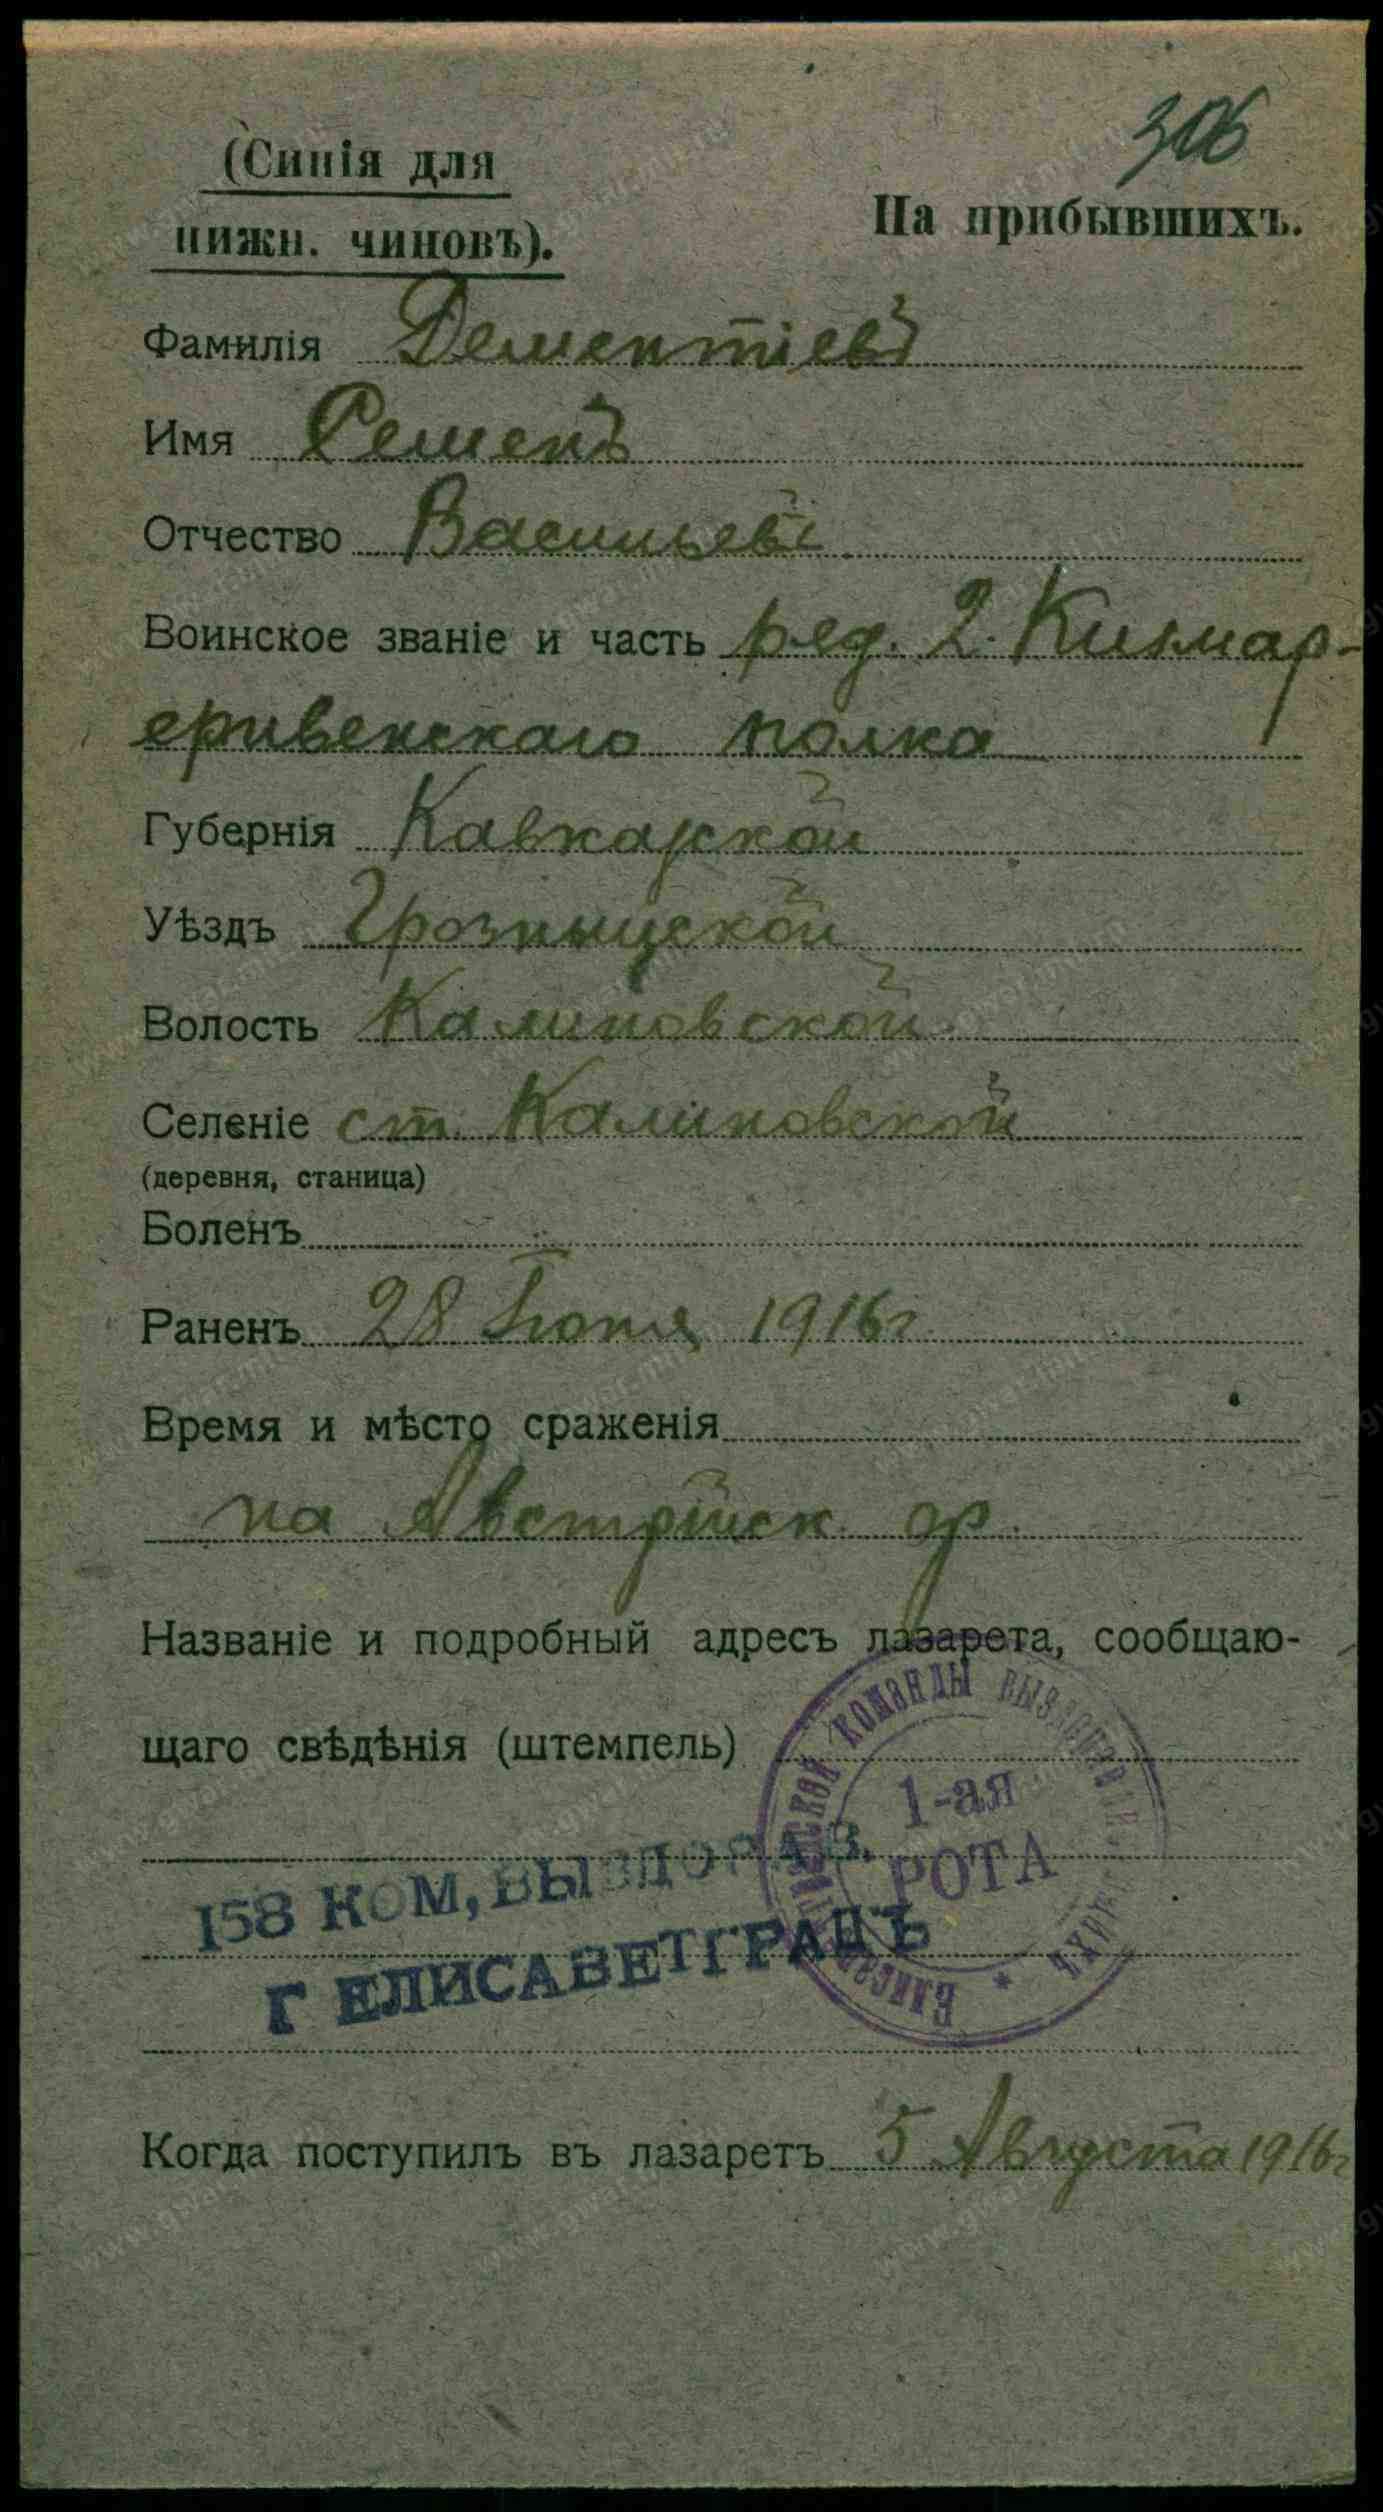 306
(Синія для
нижн. чиновъ).
На прибывшихъ.
Фамилія Дементіевъ
Имя Семенъ
Отчество Васильевъ
Воинское званіе и часть ряд. 2. Кизляр-
гривенскаго полка
Губернія Кавкарской
Уѣздъ Грозныцской
Волость Калиновской
Селеніе ст. Калиновской
(деревня, станица)
Боленъ
Раненъ 28 Іюня 1916г
Время и мѣсто сраженія
на Австрійск. ф.
Названіе и подробный адресъ лазарета, сообщаю-
щаго свѣдѣнія (штемпель)
Елисаветградской команды выздоравливающихъ
1-ая
РОТА
158 КОМ, ВЫЗДОРАВ.
Г ЕЛИСАВЕТГРАДЪ
Когда поступилъ въ лазаретъ 5 Августа 1916г